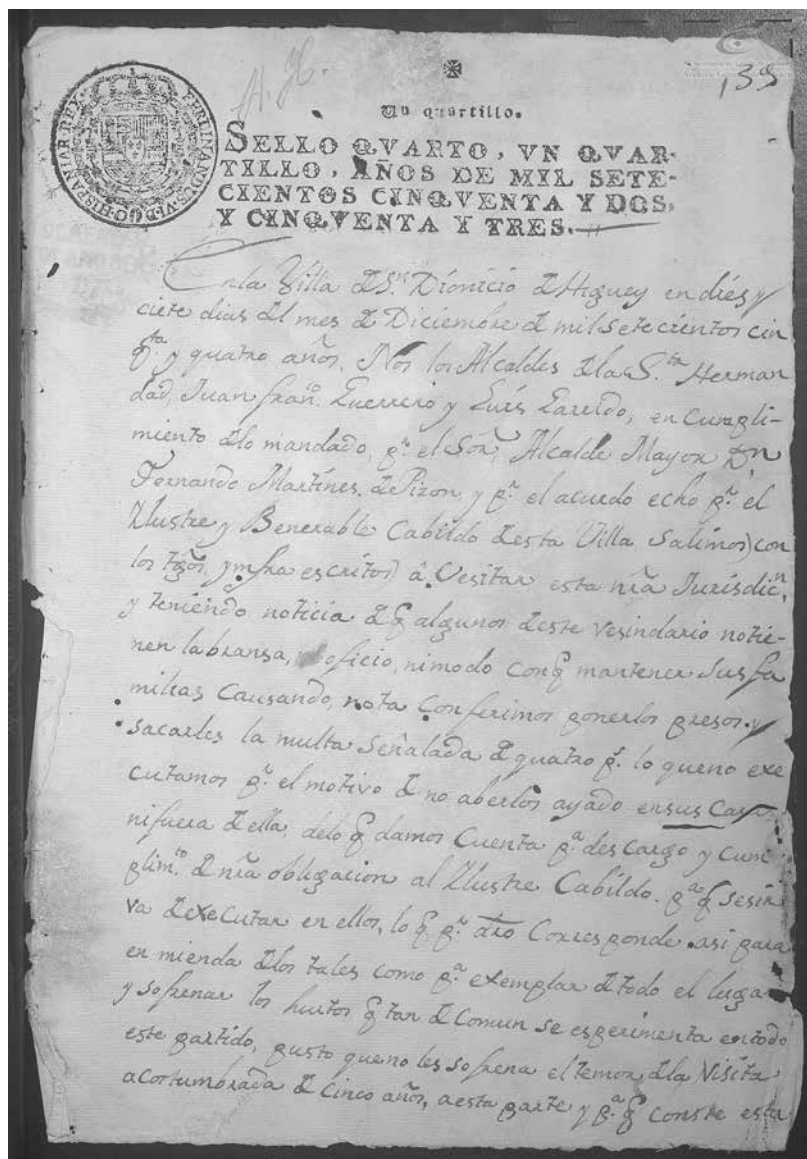 139
Un quartillo.
SELLO QVARTO, VN QVAR-
TILLO, AÑOS DE MIL SETE-
CIENTOS CINQVENTA Y DOS,
Y CINQVENTA Y TRES.
FERDINANDUS·VI·D·G·HISPANIAR·REX
En la Villa de Sn. Dionicio de Higuey en dies y
ciete dias del mes de Diciembre de mil setecientos cin
qta. y quatro años. Nos los Alcaldes de la Sta. Herman
dad, Juan Frano. Guerrero y Luis Garrido, en cumpli-
miento de lo mandado, pr. el Sór. Alcalde Mayor Dn
Fernando Martines, de Pizon y pr. el acuerdo echo pr. el
Ilustre y Benerable Cabildo desta Villa Salimos) con
los tgos, ynfra escritos) â Vesitar esta nra Jurisdicn,
y teniendo noticia de q algunos deste vesindario notie-
nen labransa, oficio, nimodo conq mantener sus fa
milias Causando, nota Conferimos ponerlos presos. y
sacarles la multa Señalada de quatro ps. lo queno exe
cutamos pr. el motivo de no aberlos ayado ensus Casas
nifuera de ella. delo q damos Cuenta pa. descargo y cum
plimto. de nra obligacion al Ilustre Cabildo. pa q sesir
va de executar en ellos, lo q pr. dro Corresponde. asi para
en mienda de los tales como pa. exemplar de todo el lugar
y sofrenar los hurtos q tan de Comun se esperimenta entodo
este partido, pusto queno les sofrena el temor de la Visita
acostumbrada de Cinco años, aesta parte y pa. q Conste esta